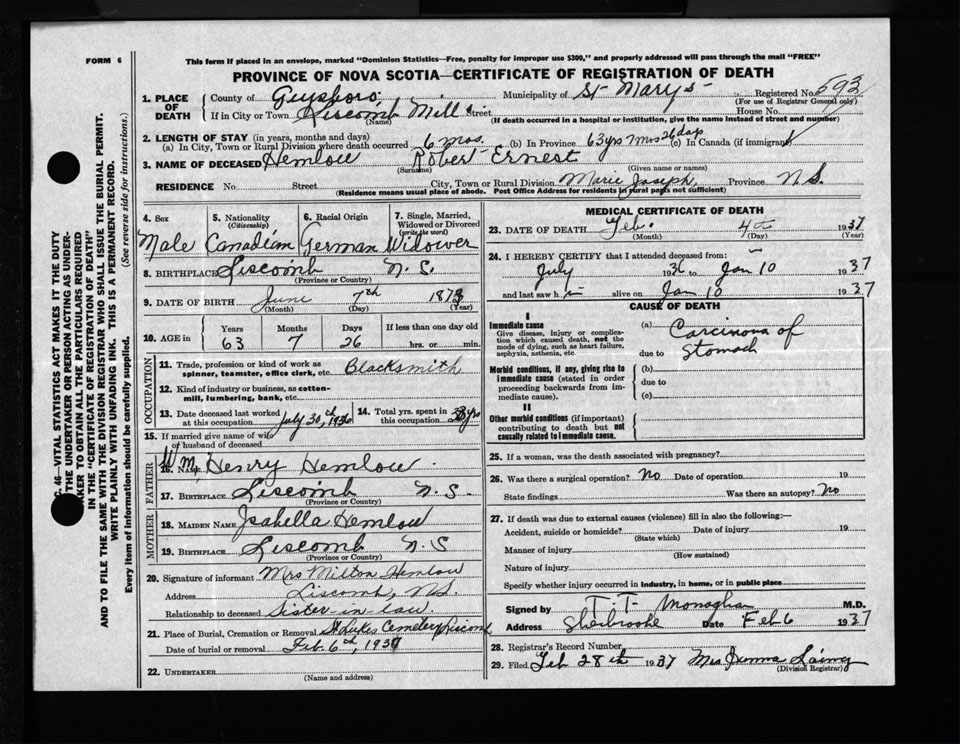 FORM 6
This form if placed in an envelope, marked "Dominion Statistics—Free, penalty for improper use $300," and properly addressed will pass through the mail "FREE"
PROVINCE OF NOVA SCOTIA—CERTIFICATE OF REGISTRATION OF DEATH
1. PLACE OF DEATH
County of Guysboro Municipality of St Marys Registered No. 593
(For use of Registrar General only)
If in City or Town Liscomb Mills Street House No.
(Name) (If death occurred in a hospital or Institution, give the name instead of street and number)
2. LENGTH OF STAY (in years, months and days)
(a) In City, Town or Rural Division where death occurred 6 mos. (b) In Province 63 yrs 7 mos 26 days (c) In Canada (if immigrant)
3. NAME OF DECEASED Hemlow Robert Ernest
(Surname) (Given name or names)
RESIDENCE No. Street City, Town or Rural Division Marie Joseph, Province N.S.
(Residence means usual place of abode. Post Office Address for residents in rural parts not sufficient)
4. Sex Male
5. Nationality (Citizenship) Canadian
6. Racial Origin German
7. Single, Married, Widowed or Divorced (write the word) Widower
8. BIRTHPLACE Liscomb N.S.
(Province or Country)
9. DATE OF BIRTH June 7th 1873
(Month) (Day) (Year)
10. AGE in Years 63 Months 7 Days 26 If less than one day old hrs. or min.
OCCUPATION
11. Trade, profession or kind of work as spinner, teamster, office clerk, etc. Blacksmith
12. Kind of industry or business, as cotton-mill, lumbering, bank, etc.
13. Date deceased last worked at this occupation July 30th, 1936
14. Total yrs. spent in this occupation 38 yrs
15. If married give name of wife or husband of deceased
FATHER
16. Name Wm Henry Hemlow.
17. Birthplace Liscomb N.S.
(Province or Country)
MOTHER
18. Maiden Name Isabella Hemlow
19. Birthplace Liscomb N.S
(Province or Country)
20. Signature of informant Mrs Milton Hemlow
Address Liscomb, N.S.
Relationship to deceased Sister-in-law.
21. Place of Burial, Cremation or Removal St Lukes Cemetery Liscomb
Date of burial or removal Feb. 6th, 1937
22. UNDERTAKER
(Name and address)
MEDICAL CERTIFICATE OF DEATH
23. DATE OF DEATH Feb. 4th 1937
(Month) (Day) (Year)
24. I HEREBY CERTIFY that I attended deceased from:
July 1936 to Jan 10 1937
and last saw h im alive on Jan 10 1937
CAUSE OF DEATH
I
Immediate cause
Give disease, injury or complication which caused death, not the mode of dying, such as heart failure, asphyxia, asthenia, etc
(a) Carcinoma of
due to Stomach
Morbid conditions, if any, giving rise to immediate cause (stated in order proceeding backwards from immediate cause).
(b)
due to
(c)
II
Other morbid conditions (if important) contributing to death but not causally related to immediate cause.
25. If a woman, was the death associated with pregnancy?
26. Was there a surgical operation? No Date of operation 19
State findings Was there an autopsy? No
27. If death was due to external causes (violence) fill in also the following:—
Accident, suicide or homicide? Date of injury 19
(State which)
Manner of injury
(How sustained)
Nature of injury
Specify whether injury occurred in industry, in home, or in public place
Signed by T. T. Monaghan M.D.
Address Sherbrooke Date Feb 6 1937
28. Registrar's Record Number
29. Filed Feb 28th 1937 Mrs
(Division Registrar)
C. 46—VITAL STATISTICS ACT MAKES IT THE DUTY
THE UNDERTAKER OR PERSON ACTING AS UNDER-
TAKER TO OBTAIN ALL THE PARTICULARS REQUIRED
IN THE "CERTIFICATE OF REGISTRATION OF DEATH"
AND TO FILE THE SAME WITH THE DIVISION REGISTRAR WHO SHALL ISSUE THE BURIAL PERMIT.
WRITE PLAINLY WITH UNFADING INK. THIS IS A PERMANENT RECORD.
Every item of Information should be carefully supplied. (See reverse side for instructions.)